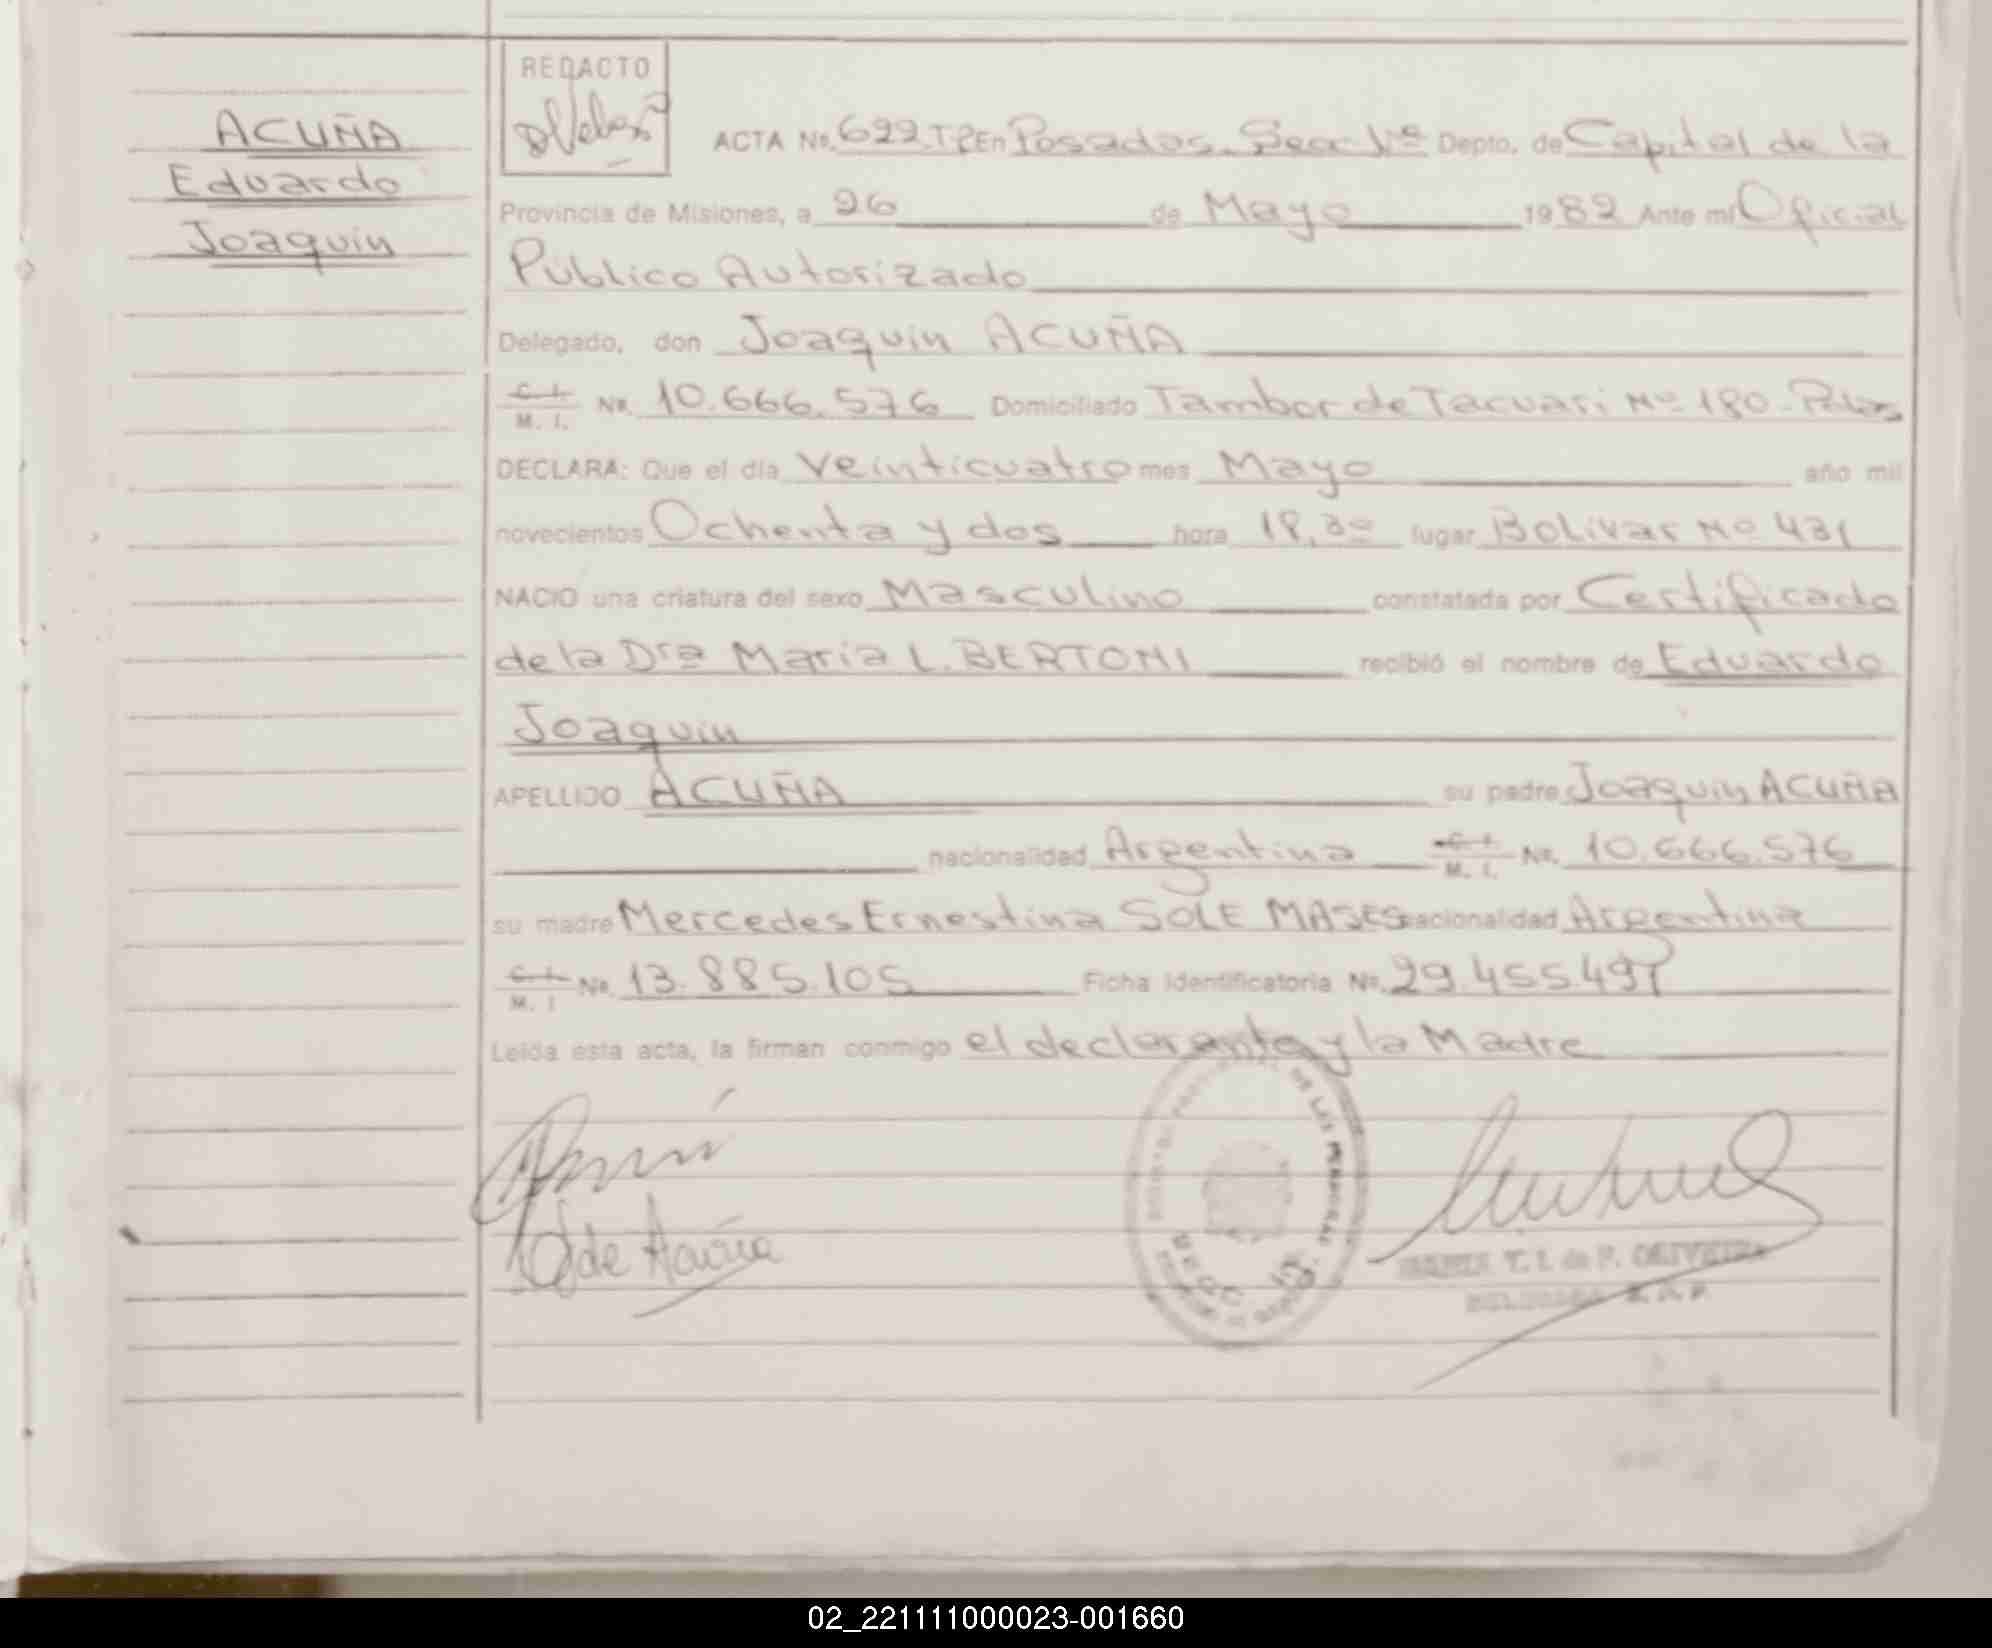 ACUÑA
Eduardo
Joaquín
REDACTO
ACTA Nº 622 TP En Posadas. Secc 1ª Depto. de Capital de la
Provincia de Misiones, a 26 de Mayo 1982 Ante mí Oficial
Público Autorizado
Delegado, don Joaquín ACUÑA
C. I. M. I. Nº 10.666.576 Domiciliado Tambor de Tacuari Nº 180 - Pdas
DECLARA: Que el día Veinticuatro mes Mayo año mil
novecientos Ochenta y dos hora 18,30 lugar Bolívar Nº 431
NACIO una criatura del sexo Masculino constatada por Certificado
de la Drª María L. BERTONI recibió el nombre de Eduardo
Joaquín
APELLIDO ACUÑA su padre Joaquín ACUÑA
nacionalidad Argentina C. I. M. I. Nº 10.666.576
su madre Mercedes Ernestina SOLE MASES nacionalidad Argentina
C. I. M. I. Nº 13.885.105 Ficha Identificatoria Nº 29.455.497
Leída esta acta, la firman conmigo el declarante y la Madre
DE LAS PERSONAS
de Acuña
T. I. de P. OLIVEIRA
02_221111000023-001660